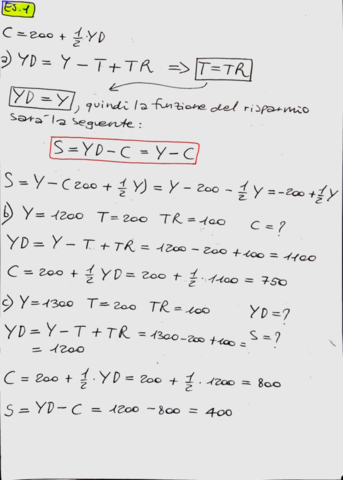 ES.1
C = 200 + 1/2 · YD
a) YD = Y - T + TR ⇒ T = TR
YD = Y, quindi la funzione del risparmio
sarà la seguente:
S = YD - C = Y - C
S = Y - (200 + 1/2 Y) = Y - 200 - 1/2 Y = -200 + 1/2 Y
b) Y = 1200 T = 200 TR = 100 C = ?
YD = Y - T + TR = 1200 - 200 + 100 = 1100
C = 200 + 1/2 YD = 200 + 1/2 · 1100 = 750
c) Y = 1300 T = 200 TR = 100 YD = ?
YD = Y - T + TR = 1300 - 200 + 100 = S = ?
= 1200
C = 200 + 1/2 · YD = 200 + 1/2 · 1200 = 800
S = YD - C = 1200 - 800 = 400